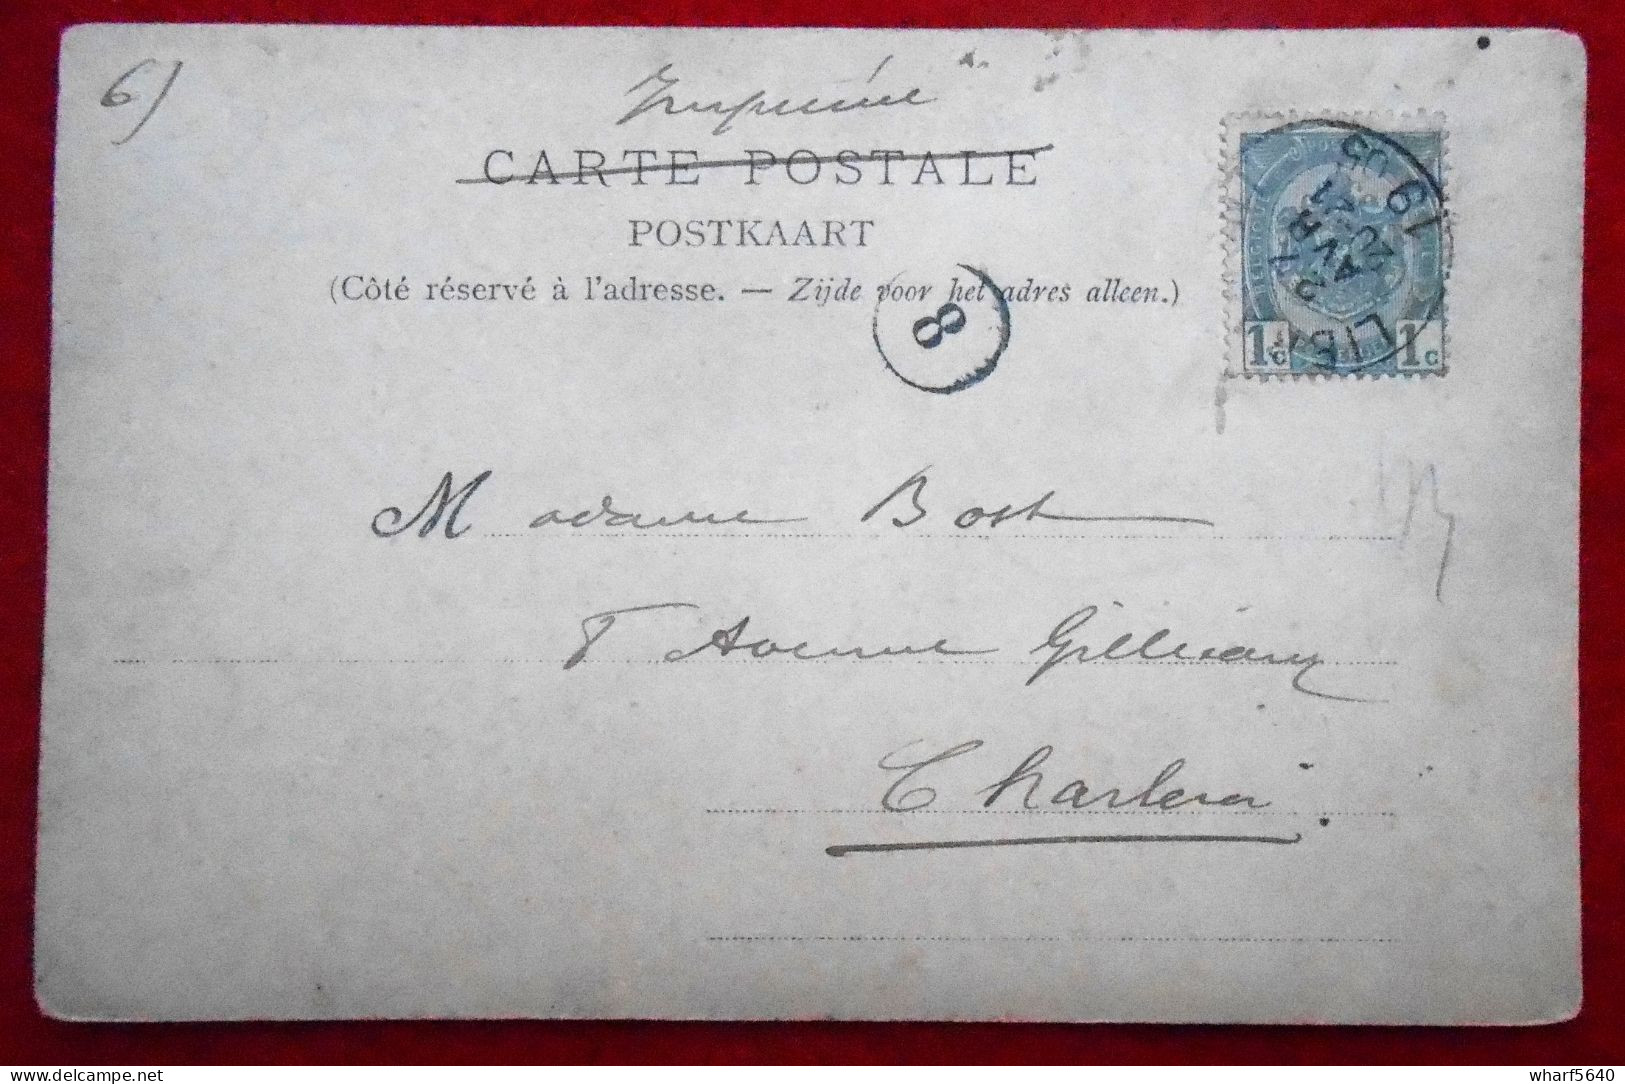 6)
Imprimé
CARTE POSTALE
POSTKAART
(Côté réservé à l'adresse. — Zijde voor het adres alleen.)
8
27
AVR
19
05
1c 1c
Madame Bost
8 Avenue Gillieaux
Charleroi
wharf5640